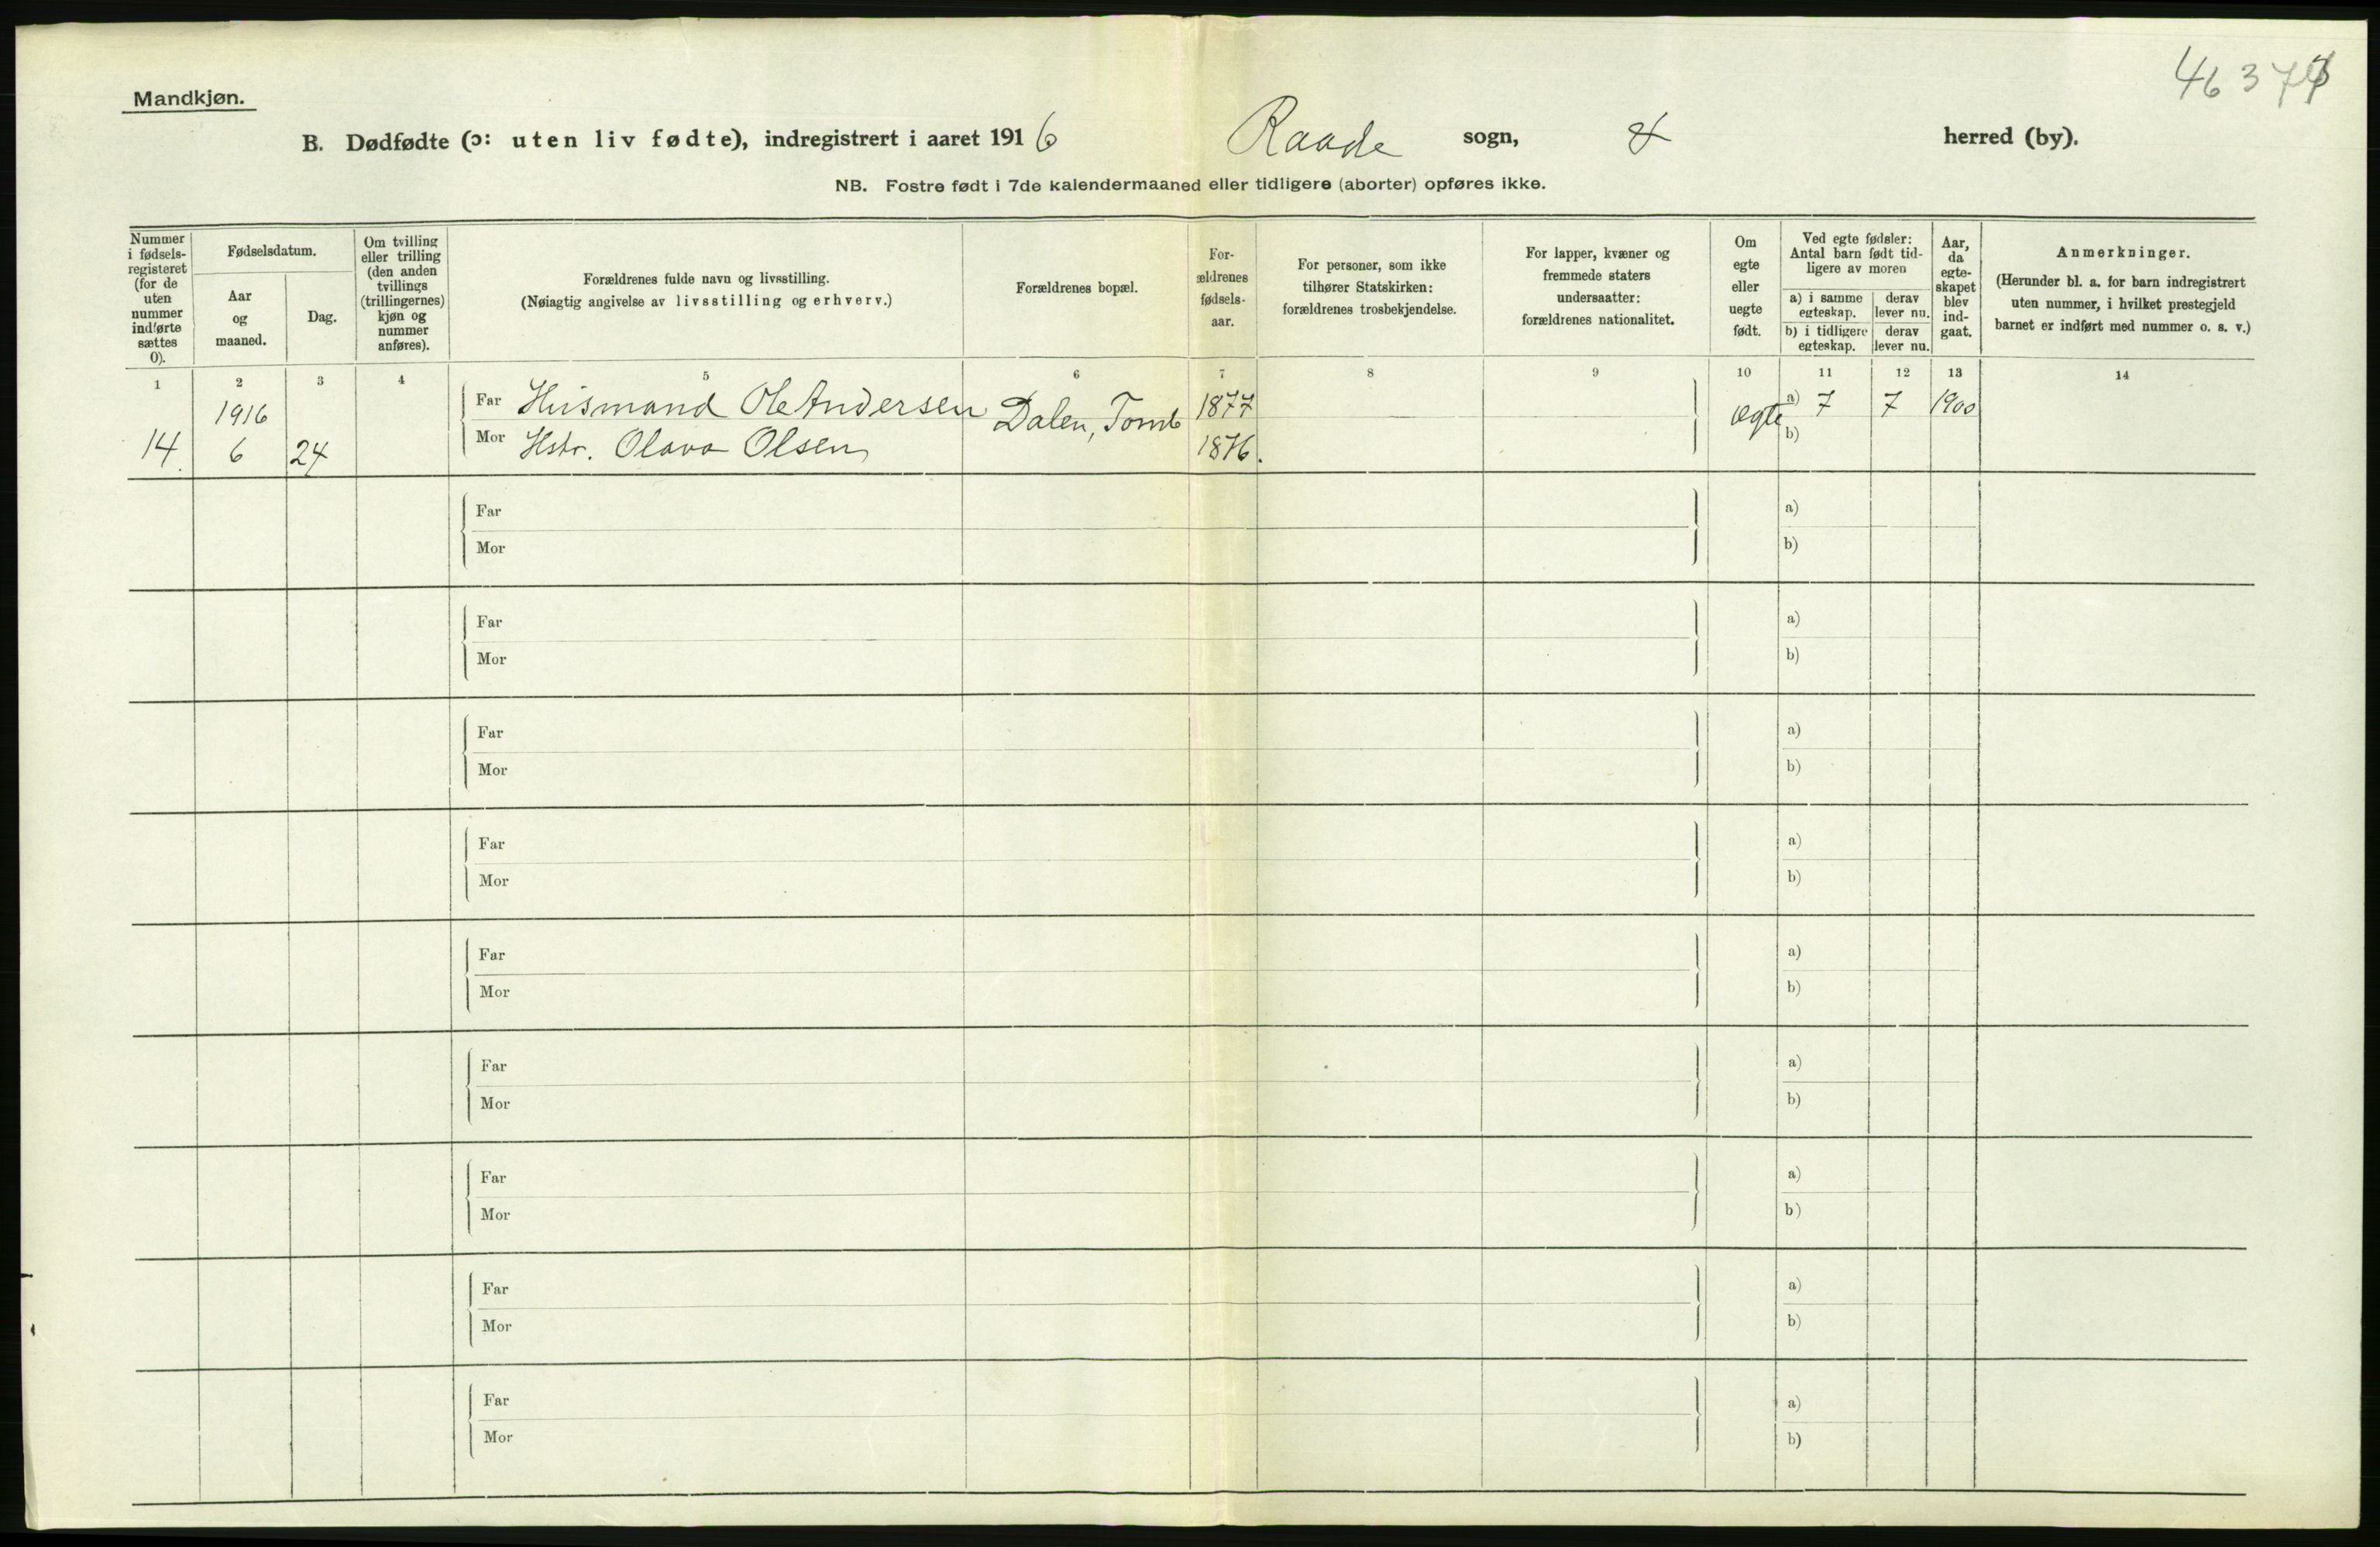 Mandkjøn.
B. Dødfødte (ɔ: uten liv fødte), indregistrert i aaret 1916 Raade sogn, herred (by).
NB. Fostre født i 7de kalendermaaned eller tidligere (aborter) opføres ikke.
Nummer i fødsels-registeret (for de uten nummer indførte sættes 0).
Fødselsdatum.
Aar og maaned.
Dag.
Om tvilling eller trilling (den anden tvillings (trillingernes) kjøn og nummer anføres).
Forældrenes fulde navn og livsstilling.
(Nøiagtig angivelse av livsstilling og erhverv.)
Forældrenes bopæl.
For-ældrenes fødsels-aar.
For personer, som ikke tilhører Statskirken: forældrenes trosbekjendelse.
For lapper, kvæner og fremmede staters undersaatter: forældrenes nationalitet.
Om egte eller uegte født.
Ved egte fødsler: Antal barn født tid-ligere av moren
a) i samme egteskap.
derav lever nu.
b) i tidligere egteskap.
derav lever nu.
Aar, da egte-skapet blev ind-gaat.
Anmerkninger.
(Herunder bl. a. for barn indregistrert uten nummer, i hvilket prestegjeld barnet er indført med nummer o. s. v.)
1 2 3 4 5 6 7 8 9 10 11 12 13 14
1916 Far Husmand Ole Andersen Dalen, Tomb 1877 egte a) 7 7 1900
14. 6 24 Mor Hstr. Olava Olsen 1876. b)
Far a)
Mor b)
Far a)
Mor b)
Far a)
Mor b)
Far a)
Mor b)
Far a)
Mor b)
Far a)
Mor b)
Far a)
Mor b)
Far a)
Mor b)
Far a)
Mor b)